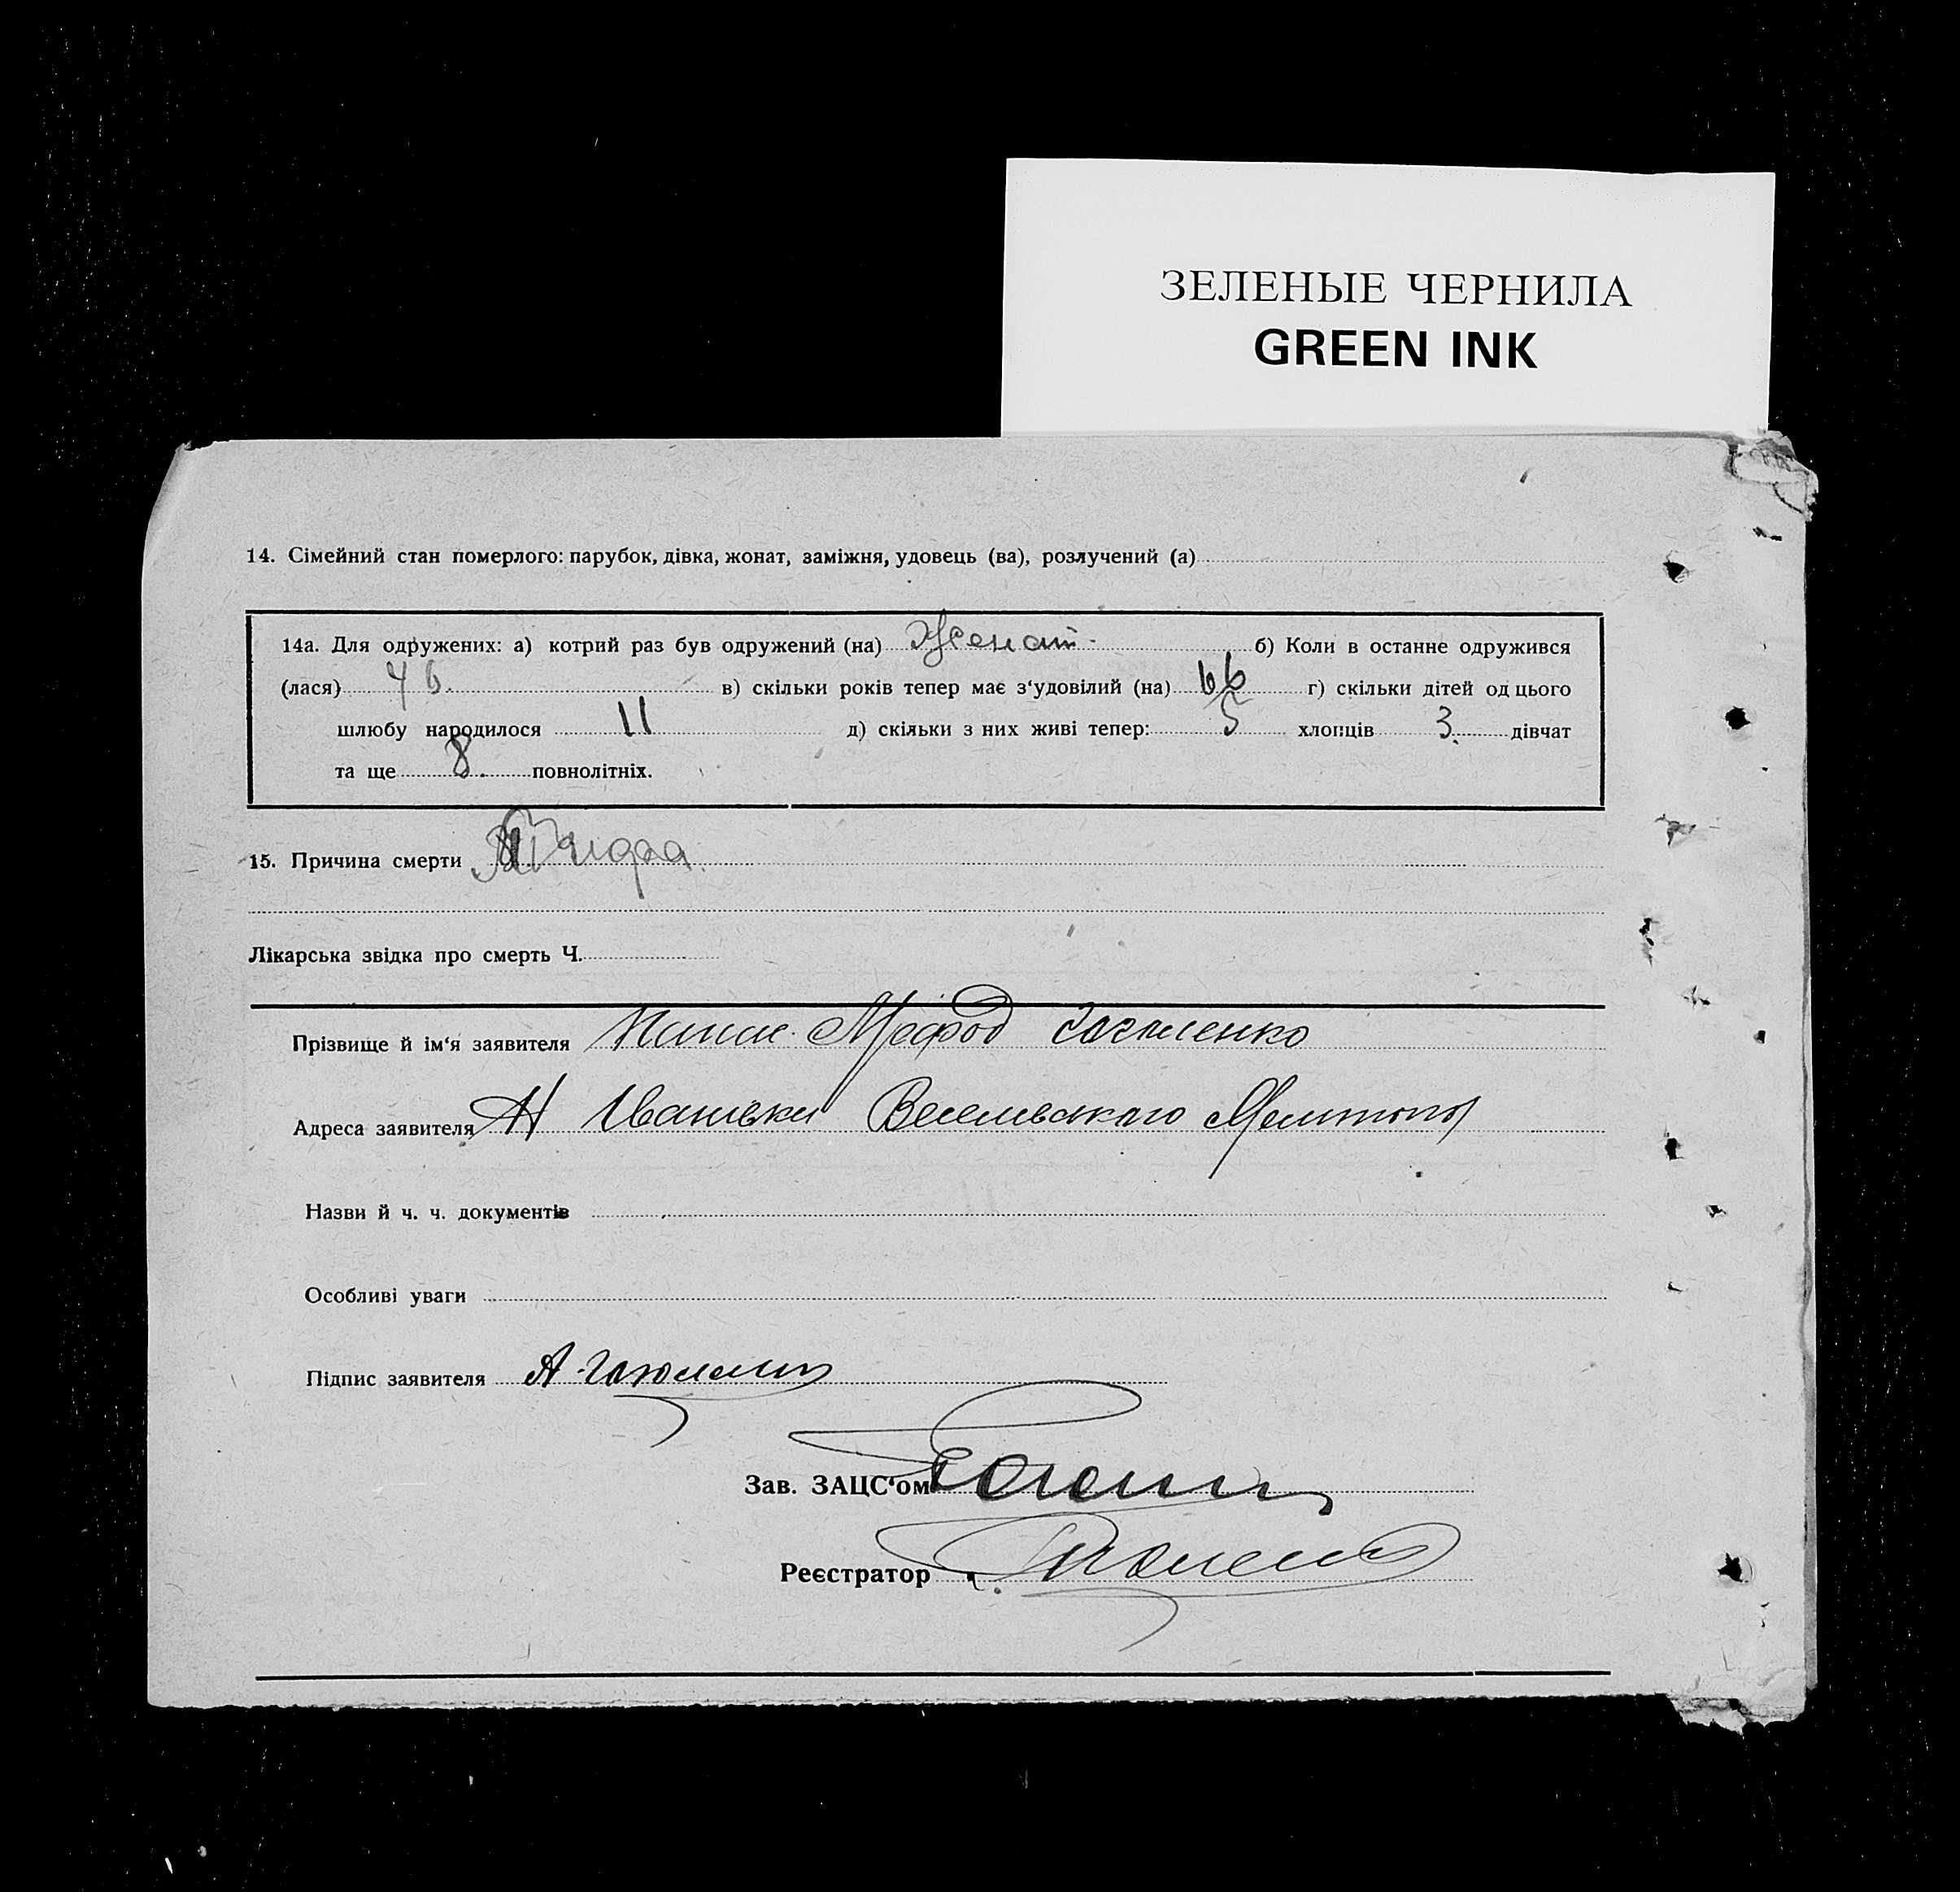 ЗЕЛЕНЫЕ ЧЕРНИЛА
GREEN INK
14. Сімейний стан померлого: парубок, дівка, жонат, заміжня, удовець (ва), розлучений (а)
14а. Для одружених: а) котрий раз був одружений (на) Женат б) Коли в останне одружився
(лася) 46. в) скільки років тепер має з‘удовілий (на) 66 г) скільки дітей од цього
шлюбу народилося 11 д) скільки з них живі тепер: 5 хлопців 3. дівчат
та ще 8. повнолітніх.
15. Причина смерти
Лікарська звідка про смерть Ч.
Прізвище й ім‘я заявителя
Адреса заявителя Н Іванівки Веселівського Мелитопол
Назви й ч. ч. документів
Особливі уваги
Підпис заявителя А
Зав. ЗАЦС‘ом
Реєстратор